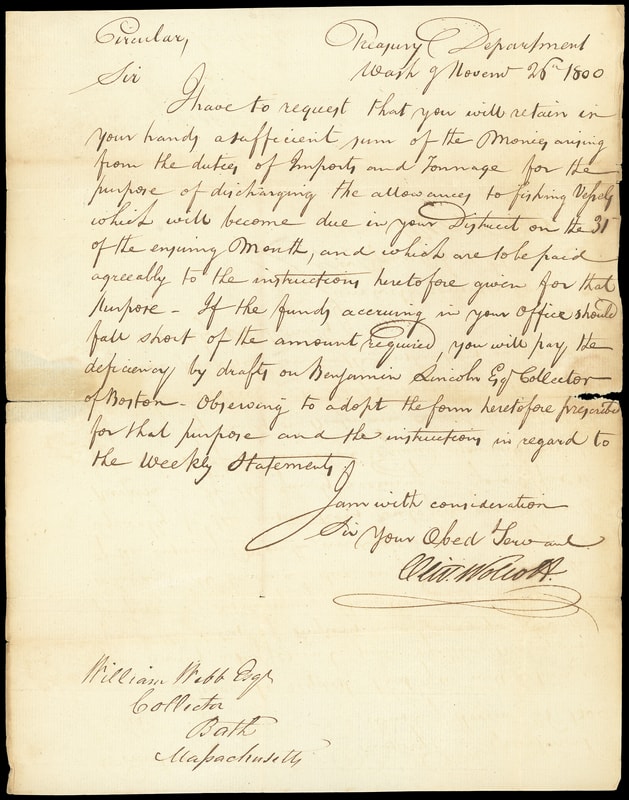 Circular,
Treasury Department
Wash g Novemr 26th 1800
Sir
I have to request that you will retain in
your hands a sufficient sum of the Monies arising
from the duties of Imports and Tonnage for the
purpose of discharging the allowances to fishing Vessels
which will become due in your District on the 31st
of the ensuing Month, and which are to be paid
agreeably to the instructions heretofore given for that
purpose - If the funds accruing in your office should
fall short of the amount required, you will pay the
deficiency by drafts on Benjamin Lincoln Esqr Collector
of Boston - Observing to adopt the form heretofore prescribed
for that purpose and the instructions in regard to
the Weekly Statements
I am with consideration
Sir Your Obed Servant
Olivr. Wolcott.
William Webb Esqr
Collector
Bath
Massachusetts